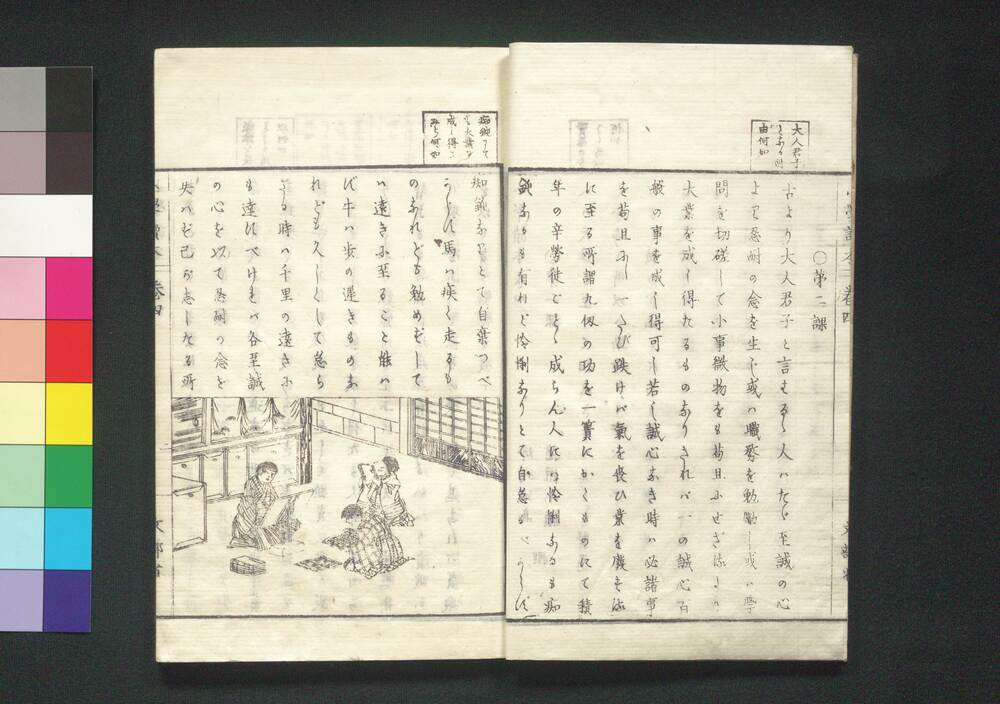 大人君子
由何如
小學讀本 巻四
○第二課
およそ大人君子と言はるゝ人ハたゞ至誠の心
より忍耐の念を生し或ハ職務を勉勵し或ハ學
問を切磋して小事微物をも苟且にせざるより
大業を成し得たるものなりされバ一の誠心百
般の事を成し得可し若し誠心なき時ハ必諸事
を苟且にし一たび跌けバ氣を喪ひ業を廢する
に至る所謂九仭の功を一簣にかくものにて積
年の辛勞徒ごとゝ成らん人にハ怜悧なるも痴
鈍なるも有れど怜悧なりとて自怠るべからず
痴鈍にて
も大業を
成し得こ
と何如
痴鈍なりとて自棄つべ
からず馬ハ疾く走るも
のなれども勉めずして
ハ遠きに至ること能ハ
ず牛ハ歩の遅きものな
れども久しくして怠ら
ざる時ハ千里の遠きに
も達すべけれバ各至誠
の心を以て忍耐の念を
失ハず己が志したる所
文部省